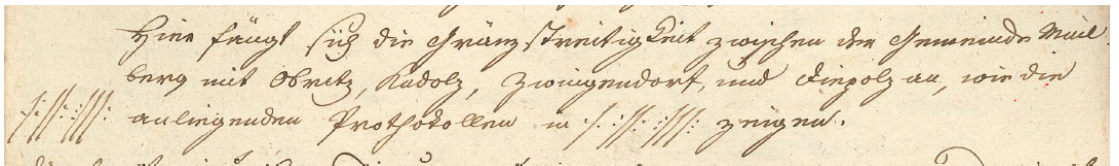 Hier fängt sich die Gränzstreitigkeit zwischen der Gemeinde Mail-
berg mit Obritz, Kadolz, Zwingendorf, und Diepolz an, wie die
./. .//. .///. anliegenden Prothokollen in ./. .//. .///. zeigen.